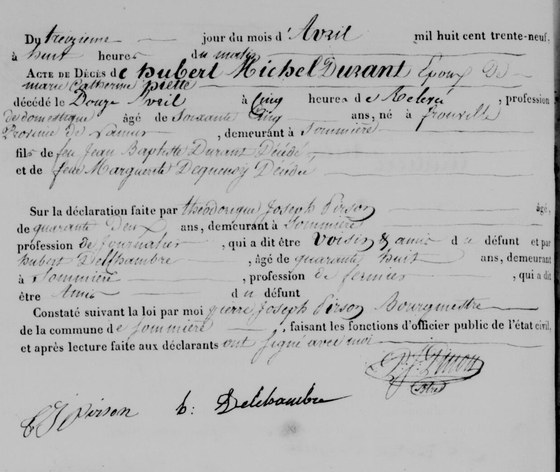 Du treizieme jour du mois d'Avril mil huit cent trente-neuf,
à huit heures du matin
ACTE DE DÉCÈS de hubert Michel Durant Epoux De
marie Catherine
décédé le Douze Avril à Cinq heures de Relevé, profession
de domestique, âgé de Soixante Cinq ans, né à frouville
Province de Namur, demeurant à Sommière
fils de feu Jean Baptiste Durant Décédé,
et de feue Marguerite Dequenoy Décédée
Sur la déclaration faite par théodorique Joseph Pirson, âgé,
de quarante Deux ans, demeurant à Sommière
profession de journalier, qui a dit être Voisin & amis du défunt et par
hubert Delchambre, âgé de quarante huit ans, demeurant
à Sommière, profession de fermier, qui a dit
être Amis du défunt
Constaté suivant la loi par moi pierre Joseph Pirson Bourgmestre
de la commune de Sommière, faisant les fonctions d'officier public de l'état civil,
et après lecture faite aux déclarants ont signé avec moi
P. J. Pirson
T J Pirson h: Delchambre